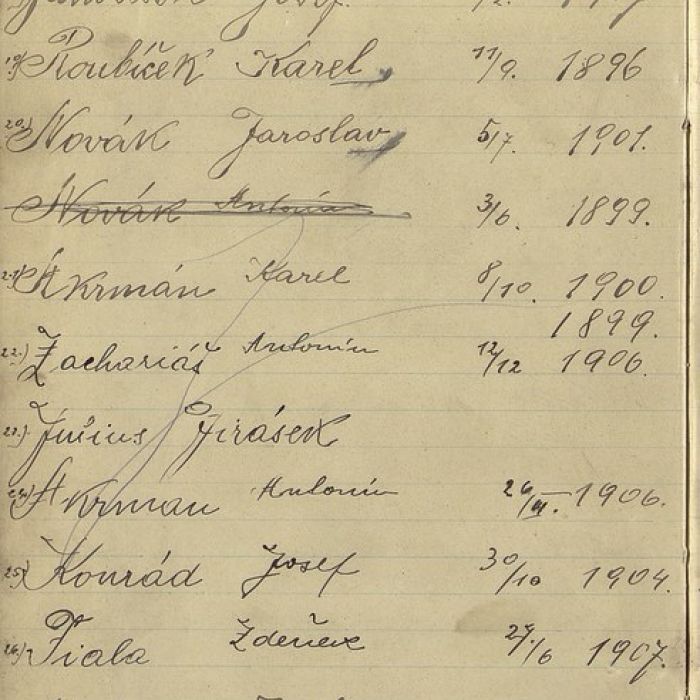 19) Roubíček Karel 11/9. 1896
20.) Novák Jaroslav 5/7. 1901.
Novák Antonín 3/6. 1899.
21) Škrmán Karel 8/10. 1900.
1899.
22.) Zachariáš Antonín 12/12 1906.
23.) Jirásek
24.) Antonín 1906.
25) Konrád Josef 30/10 1904.
26.) Fiala Zdeněk 1907.